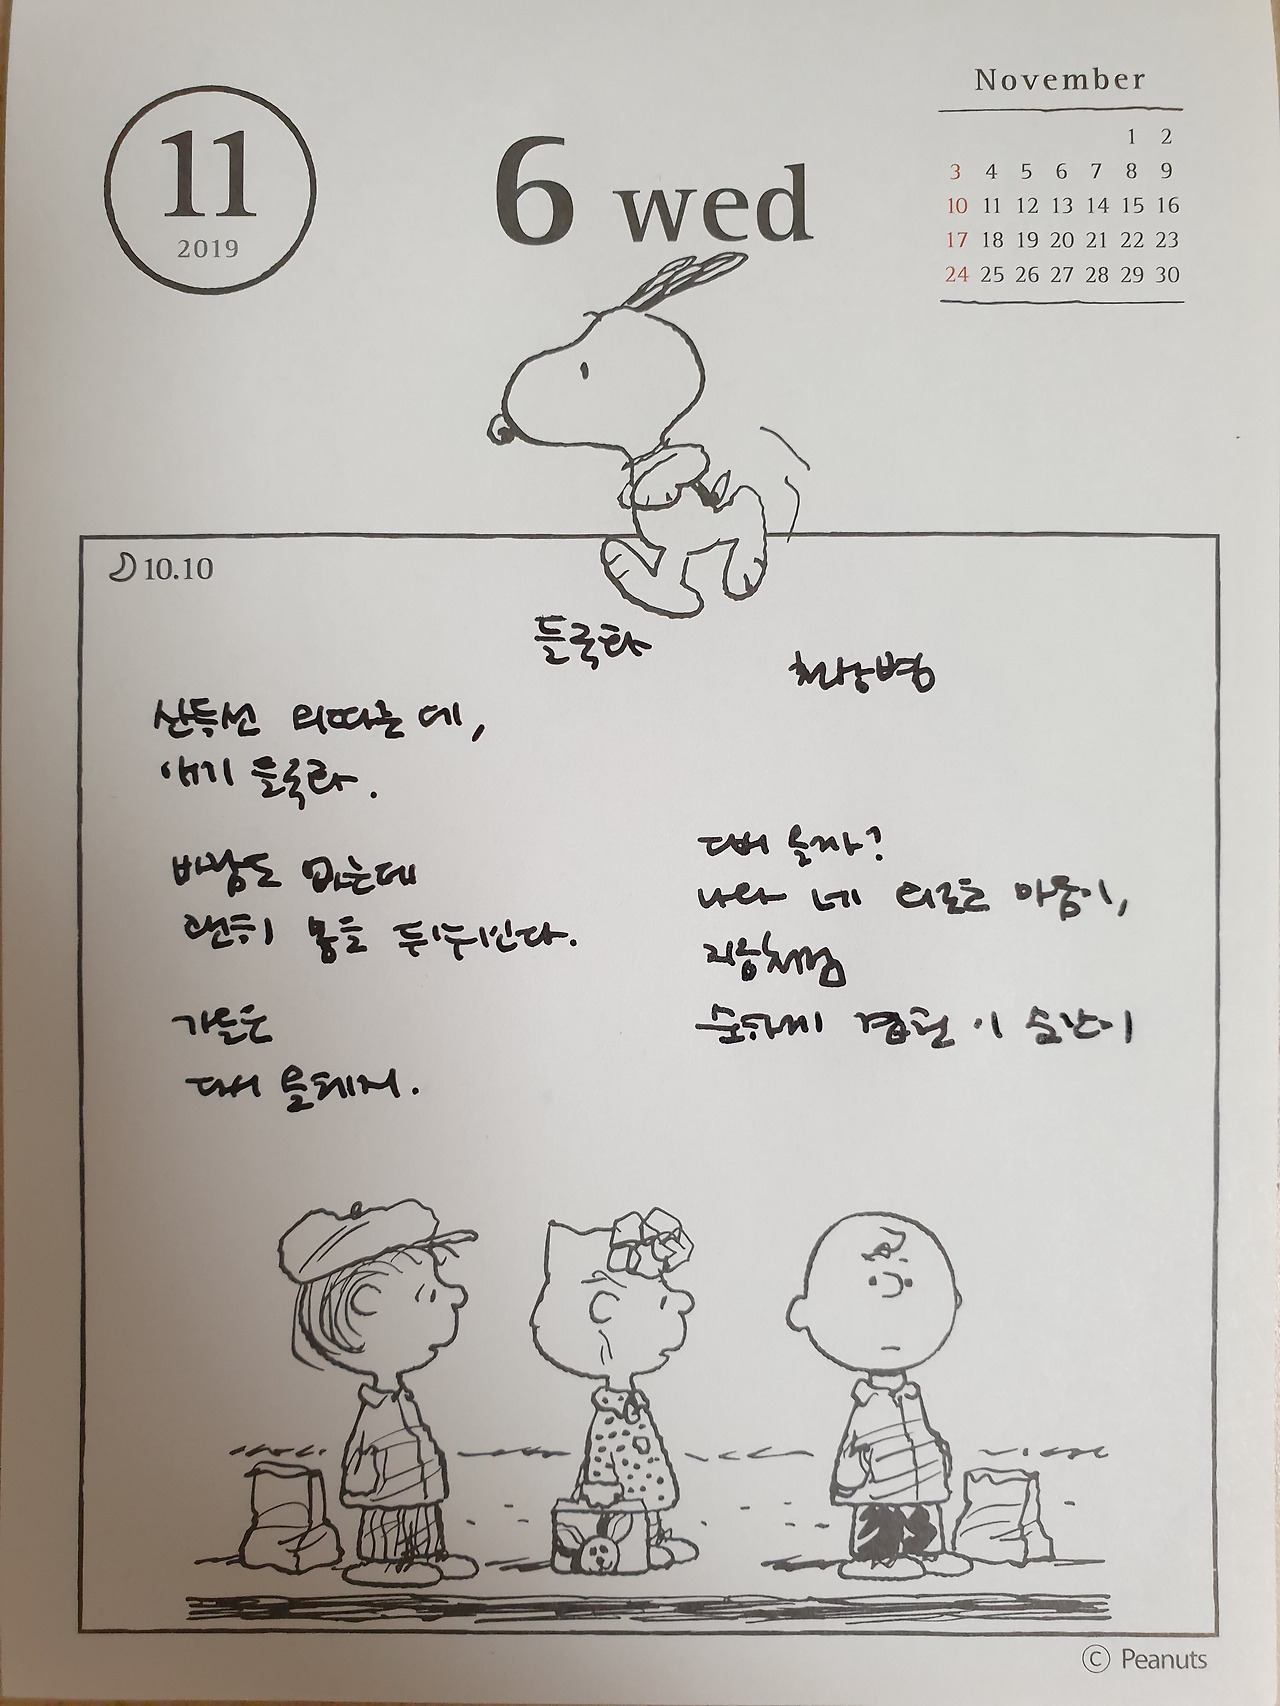 11
2019
6 wed
November
1 2
3 4 5 6 7 8 9
10 11 12 13 14 15 16
17 18 19 20 21 22 23
24 25 26 27 28 29 30
10.10
들국화
천상병
산등선 외따른 데,
애기 들국화.
바람도 없는데
괜히 몸을 뒤뉘인다.
가을은
다시 올테지.
다시 올까?
나와 네 외로운 마음이,
지금처럼
순하게 겹친 이 순간이
© Peanuts